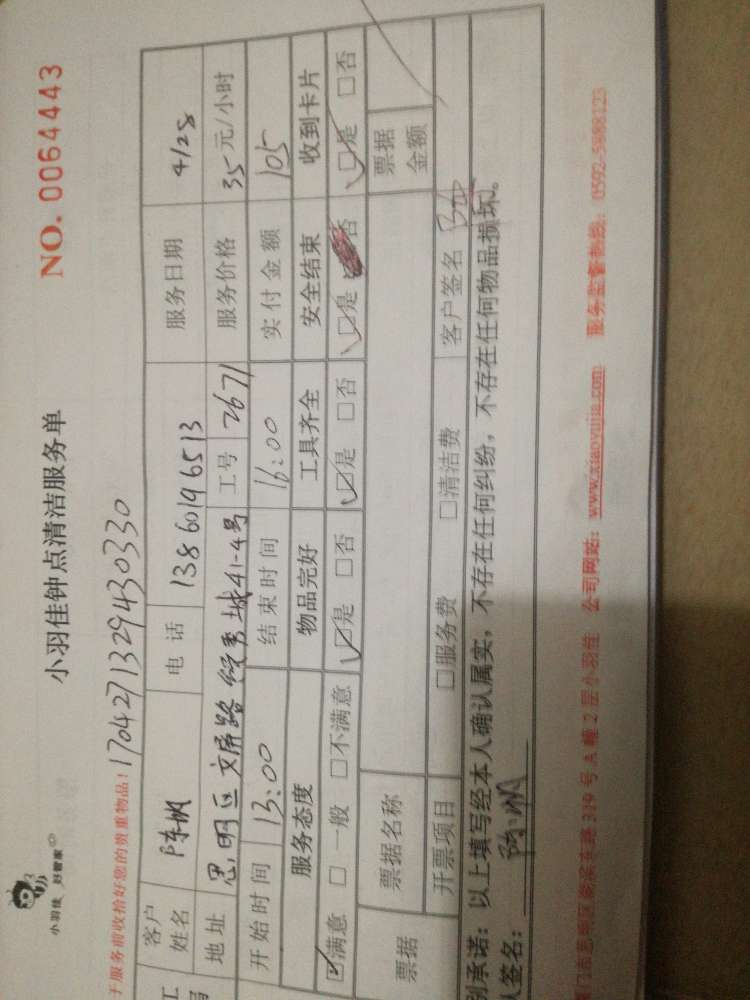 小羽佳 好管家
小羽佳钟点清洁服务单
NO. 0064443
于服务前收拾好您的贵重物品!
1704271329430330
客户姓名 陈帆 电话 13860196513 服务日期 4/28
地址 思明区 文屏路 馆秀城41-4号 工号 2671 服务价格 35元/小时
开始时间 13:00 结束时间 16:00 实付金额 105
服务态度 物品完好 工具齐全 安全结束 收到卡片
☑满意 □一般 □不满意 ☑是 □否 ☑是 □否 ☑是 否 ☑是 □否
票据 票据名称 票据金额
开票项目 □服务费 □清洁费 客户签名
别承诺:以上填写经本人确认属实,不存在任何纠纷,不存在任何物品损坏。
人签名:
门市思明区 东路319号A幢2层小羽佳 公司网站:www.xiaoyujia.com 服务监督热线:0592-5888123